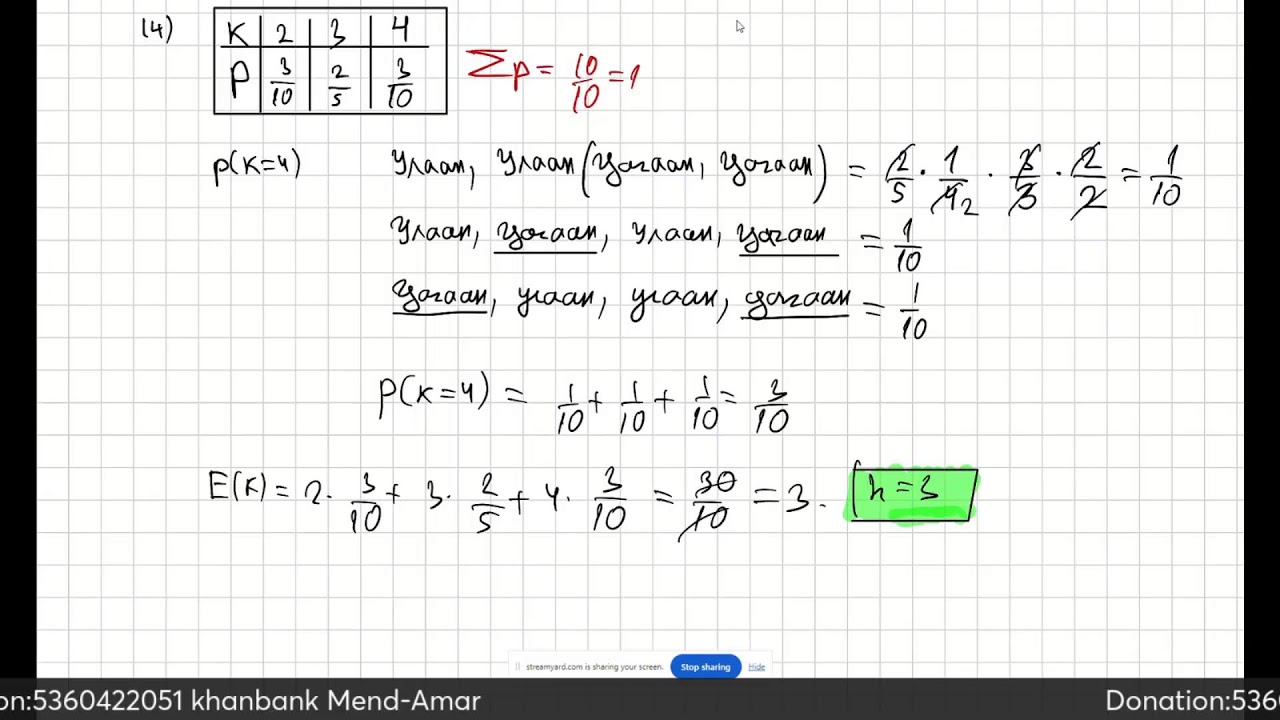 14)
K 2 3 4
P 3/10 2/5 3/10
∑p = 10/10 = 1
p(K=4) Улаан, Улаан (Цагаан, Цагаан) = 2/5 · 1/4 2 · 3/3 · 2/2 = 1/10
Улаан, цагаан, Улаан, цагаан = 1/10
Цагаан, улаан, улаан, цагаан = 1/10
P(K=4) = 1/10 + 1/10 + 1/10 = 3/10
E(K) = 2 · 3/10 + 3 · 2/5 + 4 · 3/10 = 30/10 = 3. h = 3
streamyard.com is sharing your screen. Stop sharing Hide
on:5360422051 khanbank Mend-Amar Donation:536